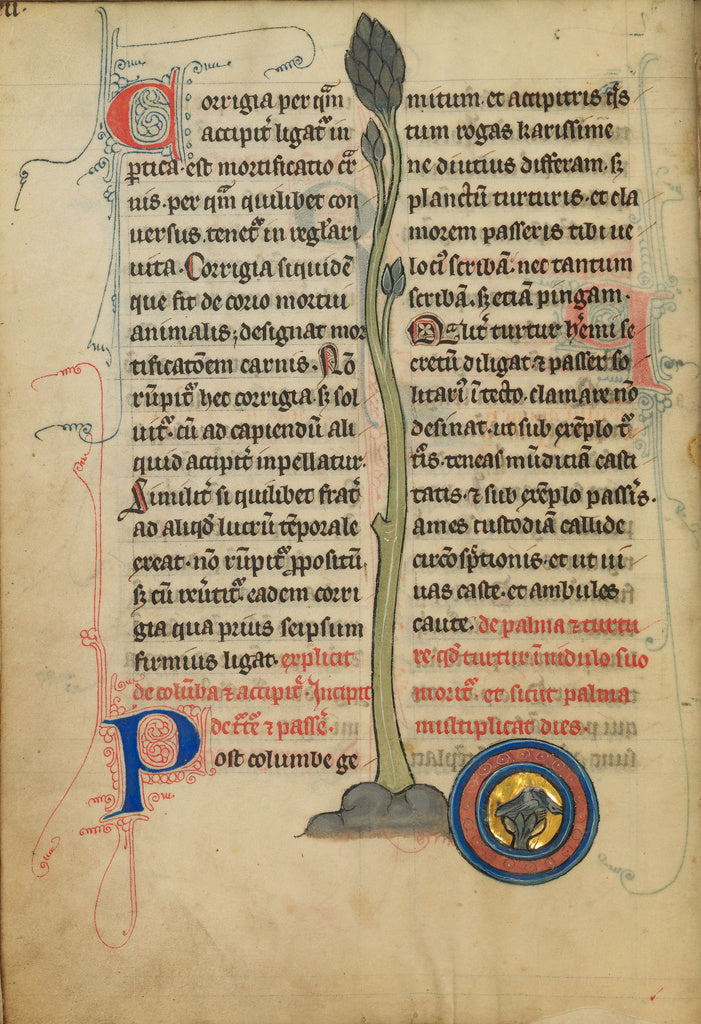 Corrigia per q̄m
accipit᷑ ligat᷑ in
ꝑtica. est mortificatio cr̄
nis. per q̄m quilibet con
uersus. tenet᷑ in regl'ari
uita. Corrigia siquidē
que fit de corio mortui
animalis; designat mor
tificatōem carnis. Nō
rūpit᷑ hec corrigia. sꝫ sol
uit᷑. cū ad capiendū ali
quid accipit᷑ inpellatur.
Similit᷑ si quilibet frat᷑
ad aliqd̄ lucrū tēporale
exeat. nō rūpit᷑ ꝓpositū.
sꝫ cū reūtit᷑. eadem corri
gia qua prius seipsum
firmius ligat. explicit
de colūba ⁊ accipit᷑. Incipit
de t᷑t᷑e ⁊ passe᷑.
Post columbe ge
mitum. et accipitris q̄s
tum rogas karissime
ne diutius differam. sꝫ
planctū turturis. et cla
morem passeris tibi ue
loci᷒ scribā. nec tantum
scribā. sꝫ etiā pingam.
Cū turtur h᷑emi se
cretū diligat ⁊ passer so
litari᷒ ī tecto. clamare nō
desinat. ut sub exēplo t᷑
t᷑is. teneas mūdiciā casti
tatis. ⁊ sub exēplo passis᷑.
ames custodiā callide
circōsp̄tionis. et ut ui
uas caste. et ambules
caute. de palma ⁊ turtu
re. qd̄ turtur ī nidulo suo
morit᷑. et sicut palma
multiplicat dies.